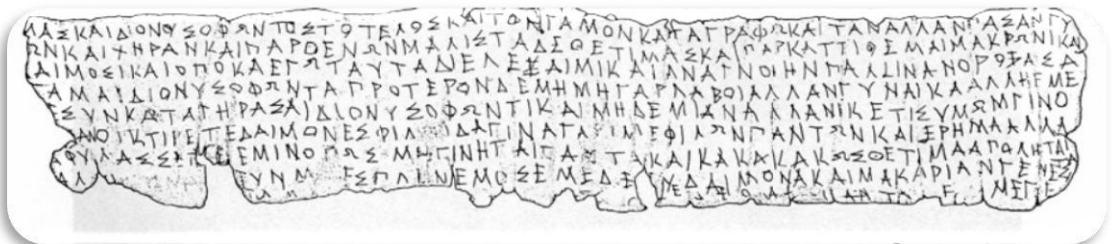 ΜΑΣΚΑΙΔΙΟΝΥΣΟΦΩΝΤΟΣΤΟΤΕΛΟΣΚΑΙΤΟΝΓΑΜΟΝΚΑΤΑΓΡΑΦΩΚΑΙΤΑΝΑΛΛΑΝΠΑΣΑΝΓΥ
ΩΝΚΑΙΧΗΡΑΝΚΑΙΠΑΡΘΕΝΩΝΜΑΛΙΣΤΑΔΕΘΕΤΙΜΑΣΚΑΙΠΑΡΚΑΤΤΙΘΕΜΑΙΜΑΚΡΩΝΙΚΑΙ
ΑΙΜΟΣΙΚΑΙΟΠΟΚΑΕΓΩΤΑΥΤΑΔΙΕΛΕΞΑΙΜΙΚΑΙΑΝΑΓΝΟΙΗΝΠΑΛΛΙΝΑΝΟΡΟΞΑΣΑ
ΓΑΜΑΙΔΙΟΝΥΣΟΦΩΝΤΑΠΡΟΤΕΡΟΝΔΕΜΗΜΗΓΑΡΛΑΒΟΙΑΛΛΑΝΓΥΝΑΙΚΑΑΛΛΗΕΜΕ
ΕΣΥΝΚΑΤΑΓΗΡΑΣΑΙΔΙΟΝΥΣΟΦΩΝΤΙΚΑΙΜΗΔΕΜΙΑΝΑΛΛΑΝΙΚΕΤΙΣΥΜΩΜΓΙΝΟ
ΑΝΟΙΚΤΙΡΕΤΕΔΑΙΜΟΝΕΣΦΙΛ ΔΑΓΙΝΑΓΑΡΙΜΕΦΙΛΩΝΠΑΝΤΩΝΚΑΙΕΡΗΜΑΑΛΛΑ
ΑΦΥΛΑΣΣΕΤΕ ΕΜΙΝΟΠΩΣΜΗΓΙΝΗΤΑΙΤΑ ΤΑΚΑΙΚΑΚΑΚΑΚΩΣΘΕΤΙΜΑΑΠΟΛΗΤΑΙ
ΑΛ ΥΝΜ ΕΣΠΛΙΝΕΜΟΣΕΜΕΔΕ ΔΑΙΜΟΝΑΚΑΙΜΑΚΑΡΙΑΝΓΕΝΕΣ
ΜΕΓΕ